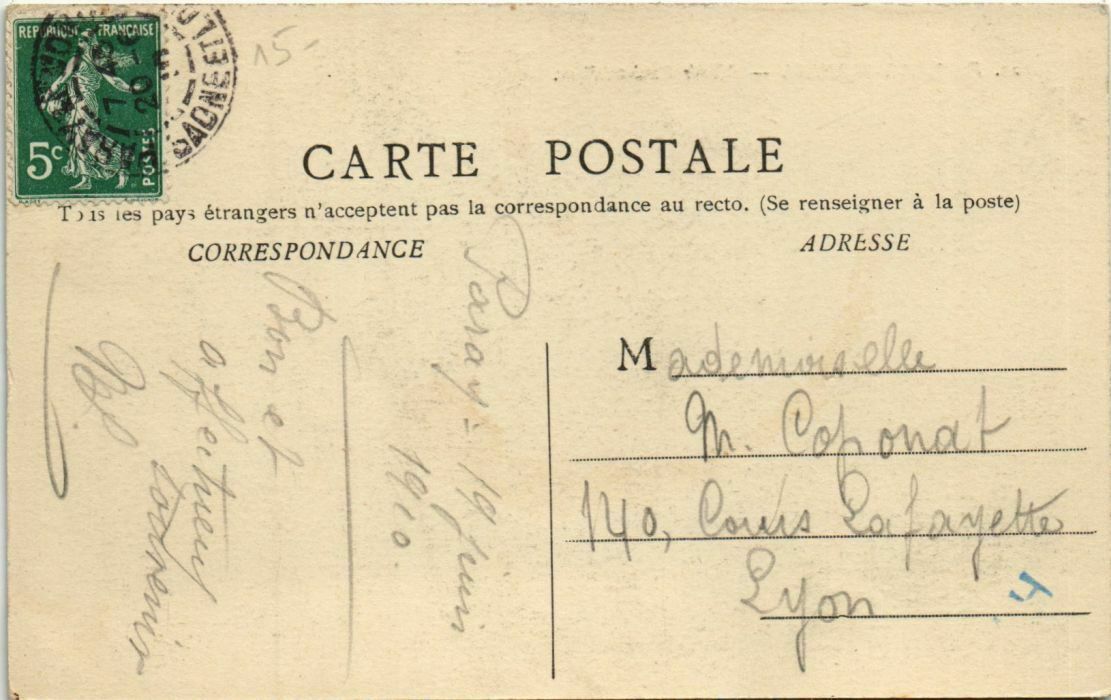 REPUBLIQUE FRANÇAISE
5c
POSTES
15-
CARTE POSTALE
Tous les pays étrangers n'acceptent pas la correspondance au recto. (Se renseigner à la poste)
CORRESPONDANCE
ADRESSE
Paray - 19 juin
1910.
Bon et
affectueux
souvenir
Mademoiselle
M. Coponat
140, Cours Lafayette
Lyon